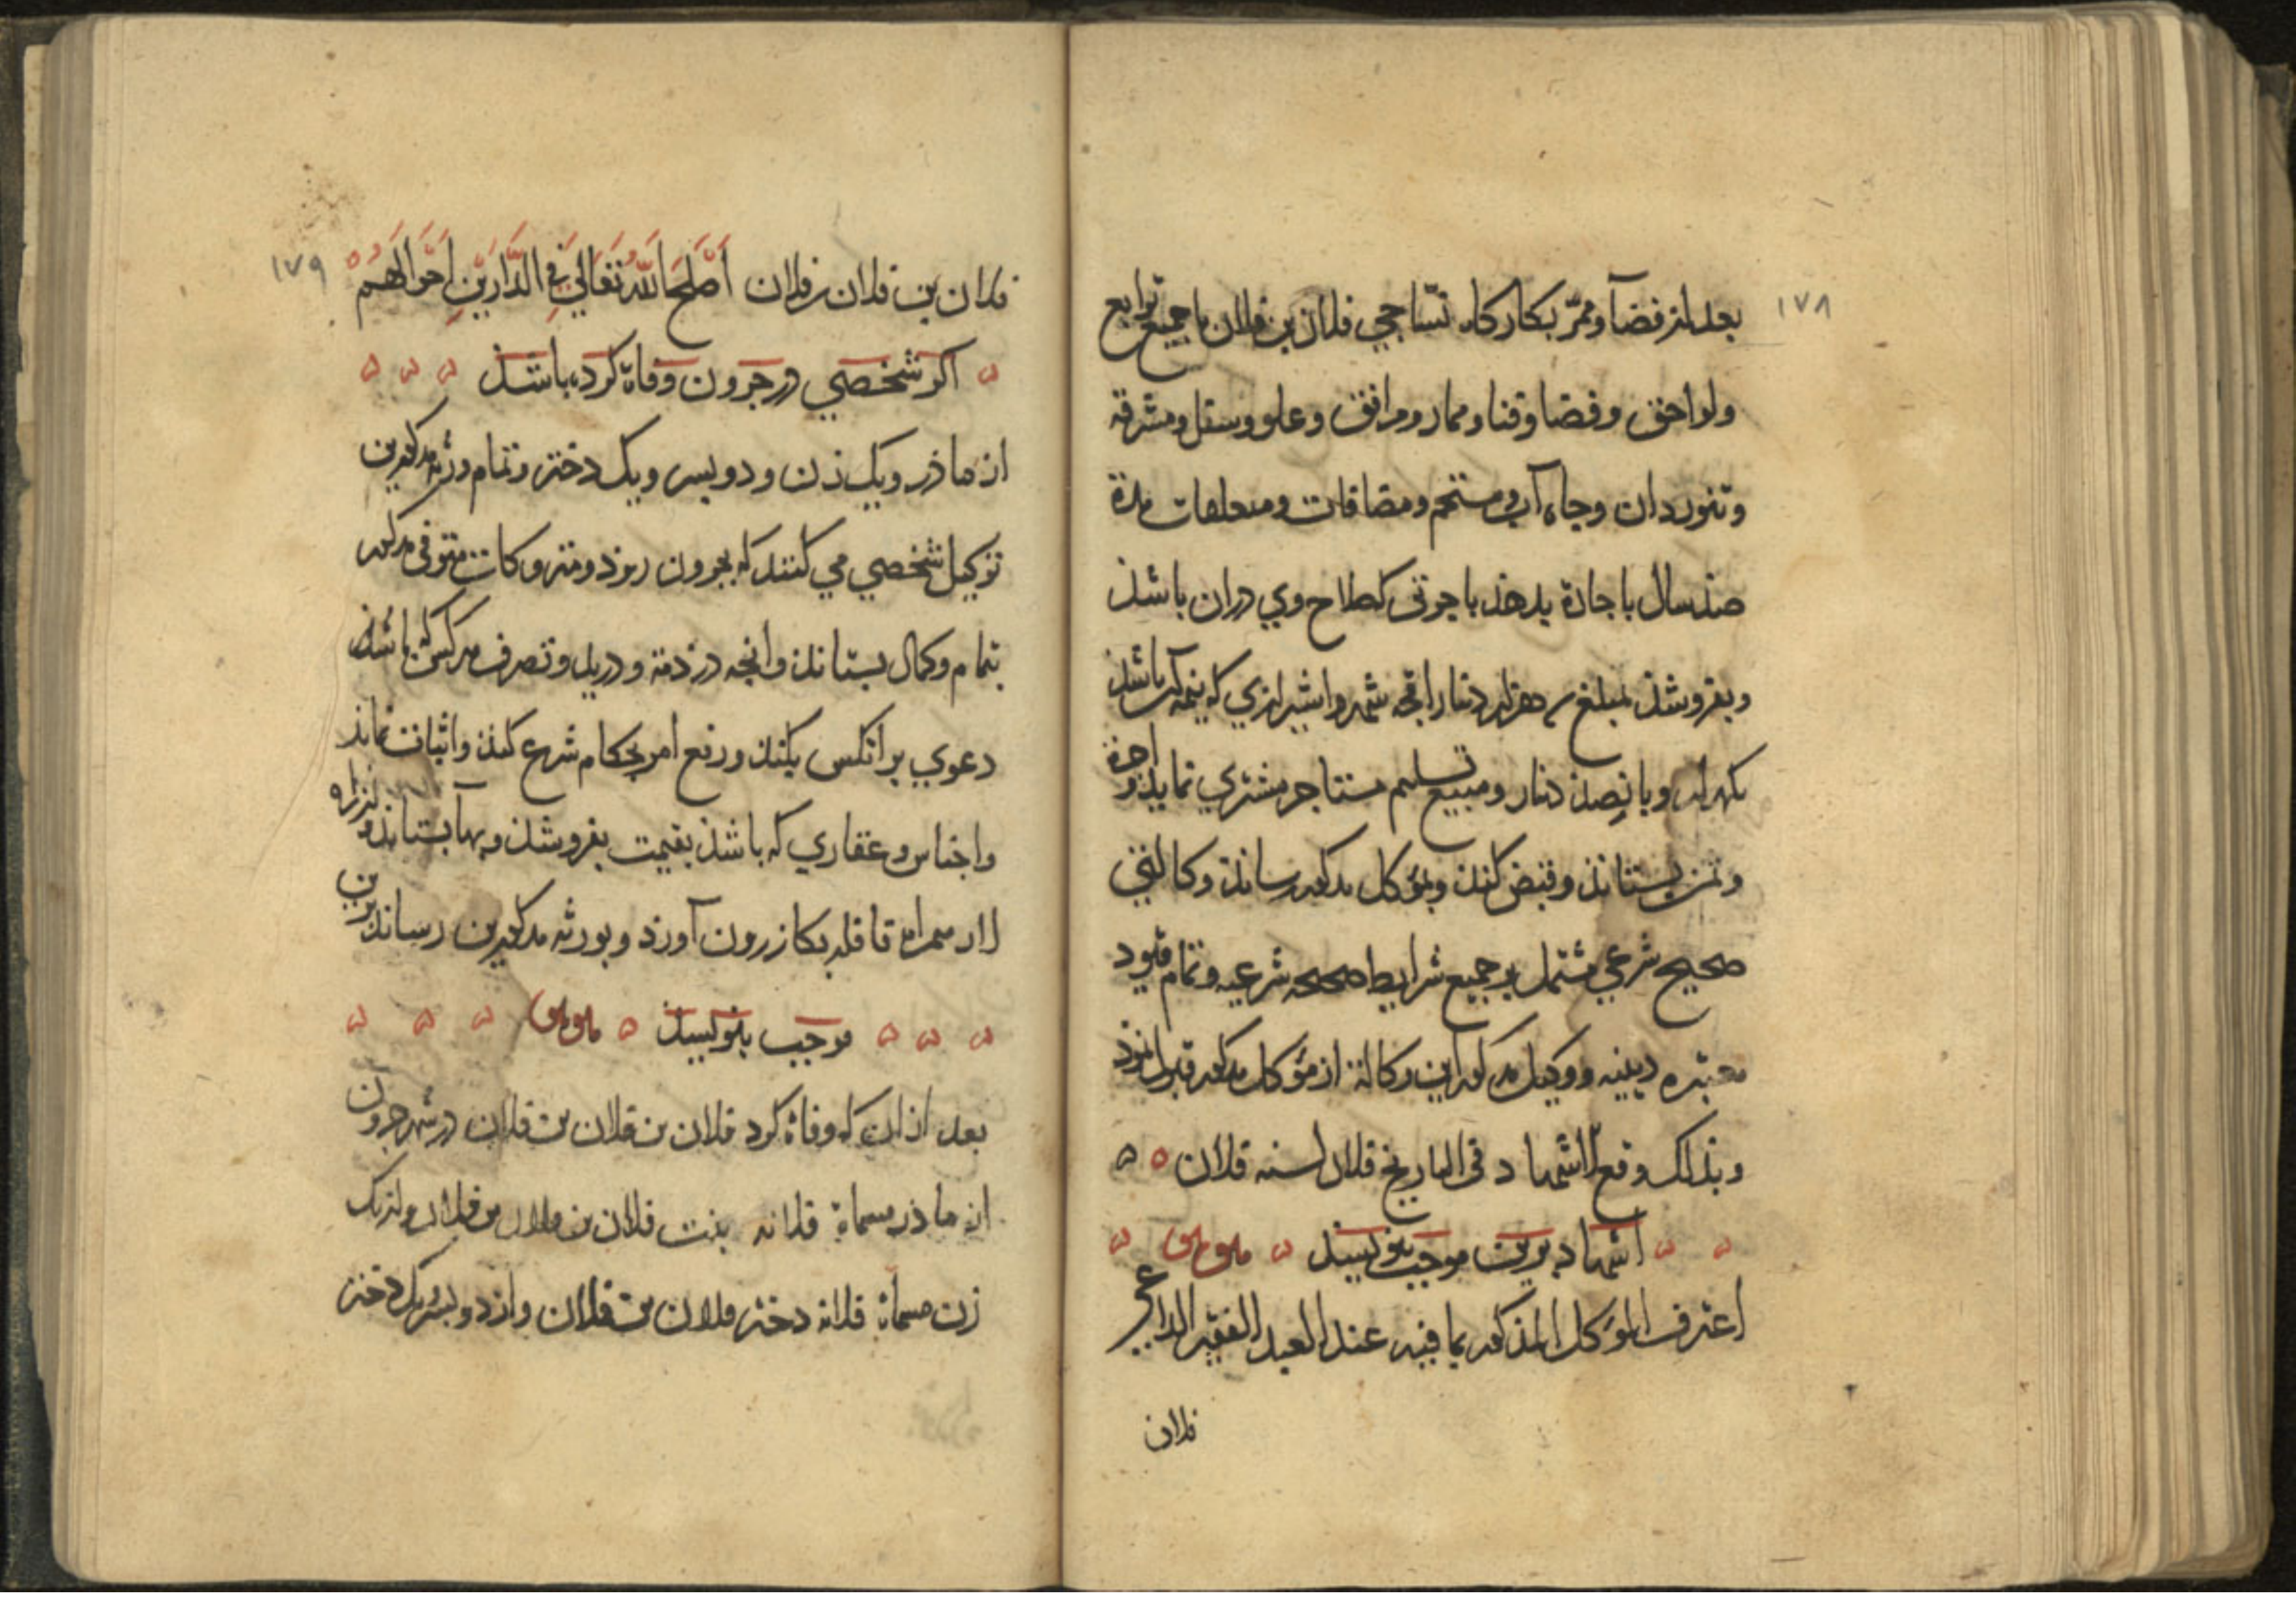 ١٧٨
بعد از فضآ وممرّ بکارکاه نسّاجی فلان بن فلان با جمیع توابع
ولواحق وفضا وقنا وممار ومرافق وعلو وسفل ومشرقه
وتنوردان وجاه آب ومستحم ومضافات ومتعلقات مدة
صذ سال باجارة بدهذ باجرتی کصلاح وی دران باشذ
وبفروشذ بمبلغ دهزار دنار اقجه شمروا شیرازی که نیمه آن باشذ
یکهزار وبانصذ دنار ومبیع تسلیم مستاجر مشتری نمایذ واجرة
وثمن بستانذ وقبض کنذ وبموکل مذکور رسانذ وکالتی
صحیح شرعی مشتمل بر جمیع شرایط صحیحه شرعیه وتمام قیود
معتبره دینیه ووکیل مذکور این وکالة از مؤکل مذکور قبول نمود
وبذلک وقع الاشهاد فی التاریخ فلان لسنه فلان
اشهاد برین موجب بنویسند
اعترف الموکل المذکور بما فیه عند العبد الفقیر الداعی
فلان
١٧٩
فلان بن فلان بن فلان اَصْلَحَ اللّهُ تَعَالَی فِی الدَّارَیْنِ اَحْوَالَهُمْ
اکر شخصی در جرون وفاة کرده باشذ
از ماذر ویک زن ودو پسر ویک دختر وتمام ورثه مذکورین
توکیل شخصی می کنند که بجرون روذ ومتروکات متوفی مذکور
بتمام وکمال بستانذ وانجه در ذمة ودرید وتصرف هر کس که باشذ
دعوی بر انکس بکنذ ورفع امر بحکام شرع کنذ واثبات نماید
واجناس وعقاری که باشذ بقیمت بفروشذ وبهآ بستانذ واز راه
لار همراه قافله بکازرون آورذ وبورثه مذکورین رسانذ برین
موجب بنویسند
بعد از ان که وفاة کرد فلان بن فلان بن فلان در شهر جرون
از ماذر مسماة فلانه بنت فلان بن فلان بن فلان واز یک
زن مسماة فلانه دختر فلان بن فلان واز دو پسر ویک دختر